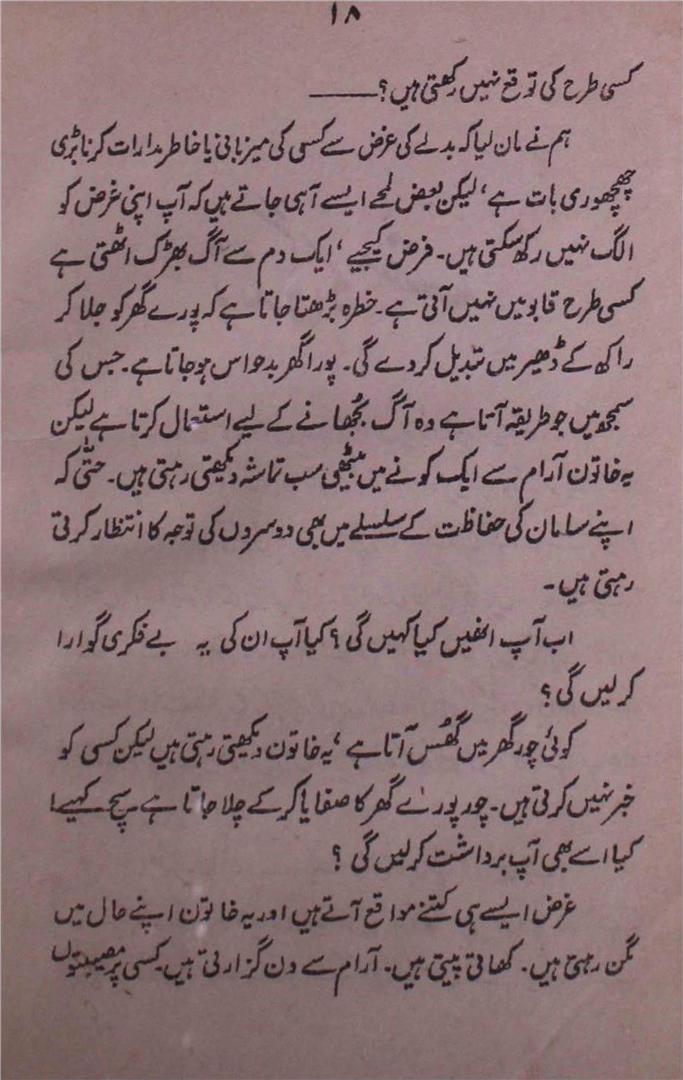 ۱۸
کسی طرح کی توقع نہیں رکھتی ہیں؟ ــــــــ
ہم نے مان لیا کہ بدلے کی غرض سے کسی کی میزبانی یا خاطر مدارات کرنا بڑی
چھچھوری بات ہے، لیکن بعض لمحے ایسے آ ہی جاتے ہیں کہ آپ اپنی غرض کو
الگ نہیں رکھ سکتی ہیں۔ فرض کیجیے، ایک دم سے آگ بھڑک اٹھتی ہے
کسی طرح قابو میں نہیں آتی ہے۔ خطرہ بڑھتا جاتا ہے کہ پورے گھر کو جلا کر
راکھ کے ڈھیر میں تبدیل کر دے گی۔ پورا گھر بدحواس ہو جاتا ہے۔ جس کی
سمجھ میں جو طریقہ آتا ہے وہ آگ بُجھانے کے لیے استعمال کرتا ہے لیکن
یہ خاتون آرام سے ایک کونے میں بیٹھی سب تماشہ دیکھتی رہتی ہیں۔ حتّٰی کہ
اپنے سامان کی حفاظت کے سلسلے میں بھی دوسروں کی توجہ کا انتظار کرتی
رہتی ہیں۔
اب آپ انھیں کیا کہیں گی؟ کیا آپ ان کی یہ بے فکری گوارا
کر لیں گی؟
کوئی چور گھر میں گھُس آتا ہے، یہ خاتون دیکھتی رہتی ہیں لیکن کسی کو
خبر نہیں کرتی ہیں۔ چور پورے گھر کا صفایا کر کے چلا جاتا ہے۔ سچ کہیے!
کیا اسے بھی آپ برداشت کر لیں گی؟
غرض ایسے ہی کتنے مواقع آتے ہیں اور یہ خاتون اپنے حال میں
مگن رہتی ہیں۔ کھاتی پیتی ہیں۔ آرام سے دن گزارتی ہیں۔ کسی پر مصیبتوں